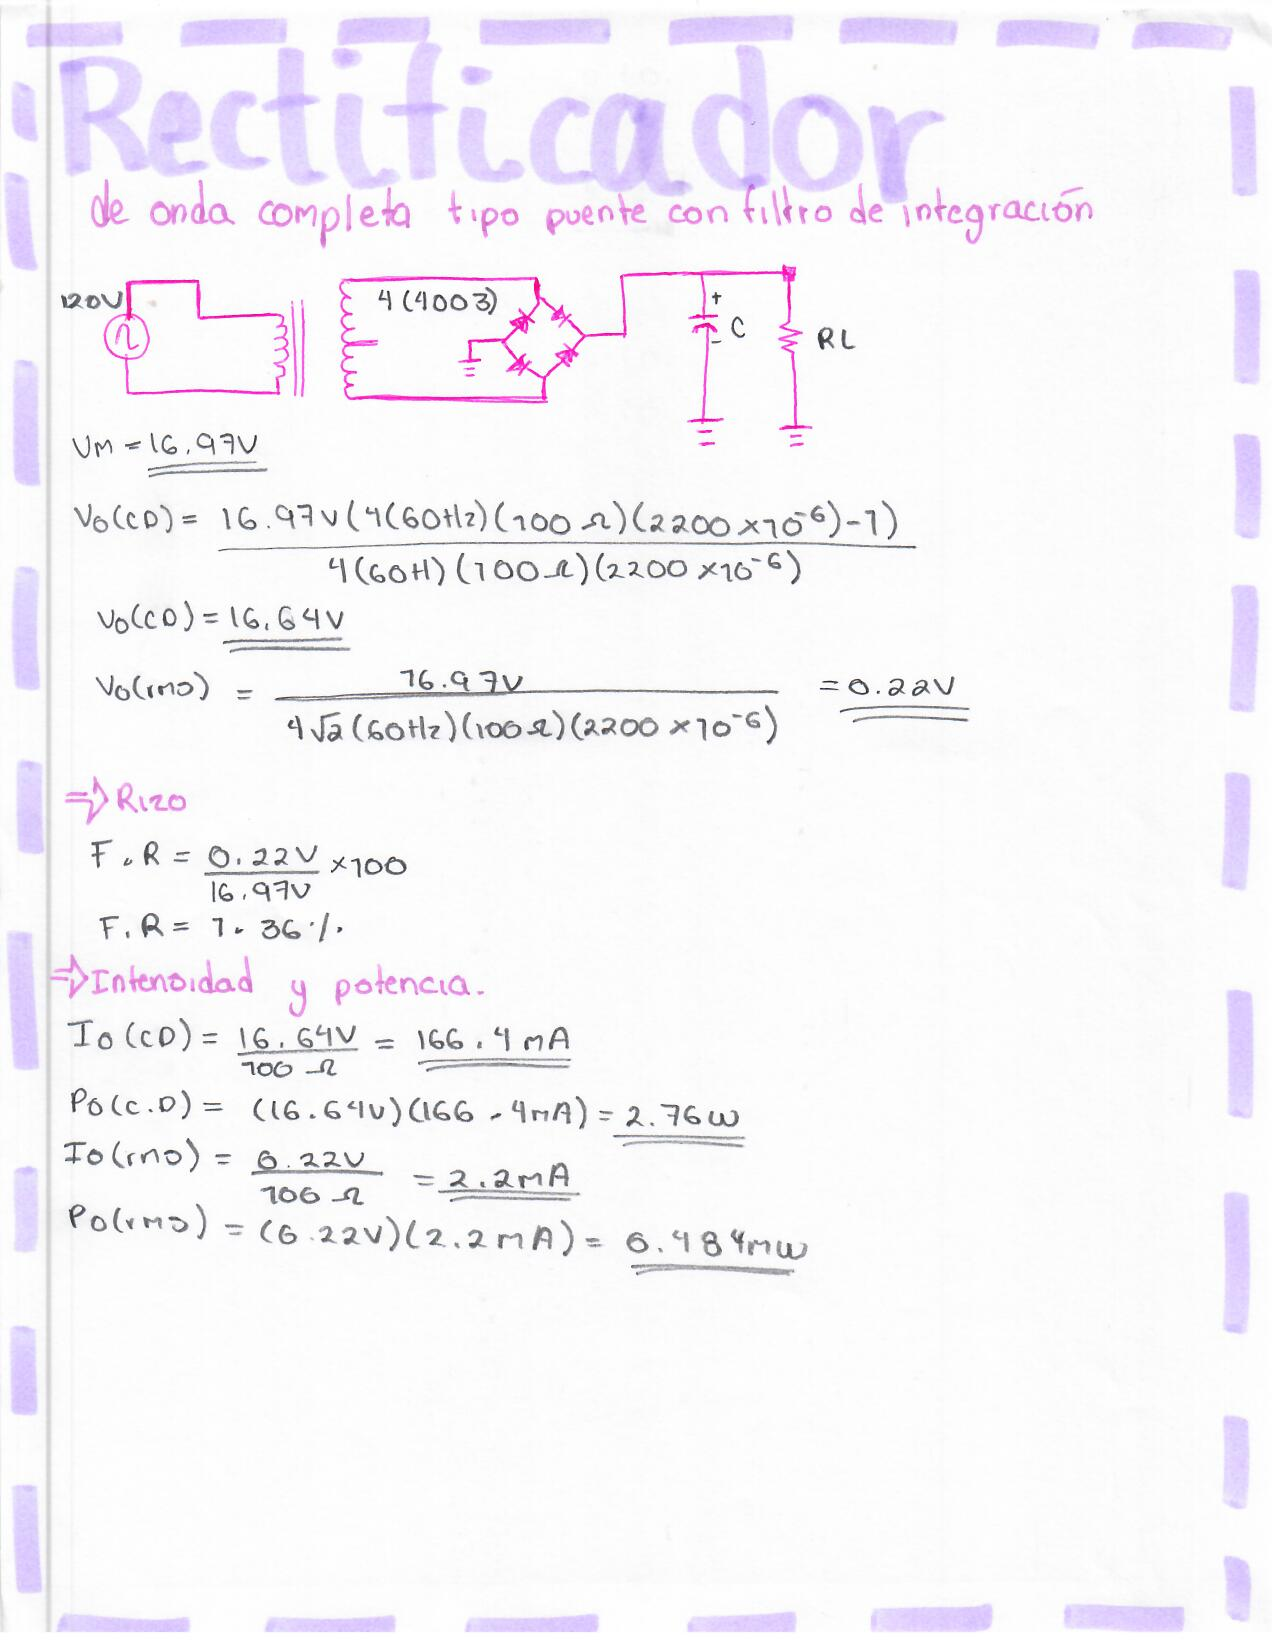 Rectificador
de onda completa tipo puente con filtro de integración
120V
4 (4003)
+
C
-
RL
VM = 16.97V
Vo(CD) = 16.97V(4(60Hz)(100Ω)(2200 x10^-6)-1)
4(60H)(100Ω)(2200 x10^-6)
Vo(CD) = 16.64V
Vo(rms) = 16.97V = 0.22V
4√2(60Hz)(100Ω)(2200 x10^-6)
⇒Rizo
F.R = 0.22V x100
16.97V
F.R = 1.36%
⇒Intensidad y potencia.
Io(CD) = 16.64V = 166.4mA
100Ω
Po(C.D) = (16.64V)(166.4mA) = 2.76W
Io(rms) = 0.22V = 2.2mA
100Ω
Po(rms) = (0.22V)(2.2mA) = 0.484mW